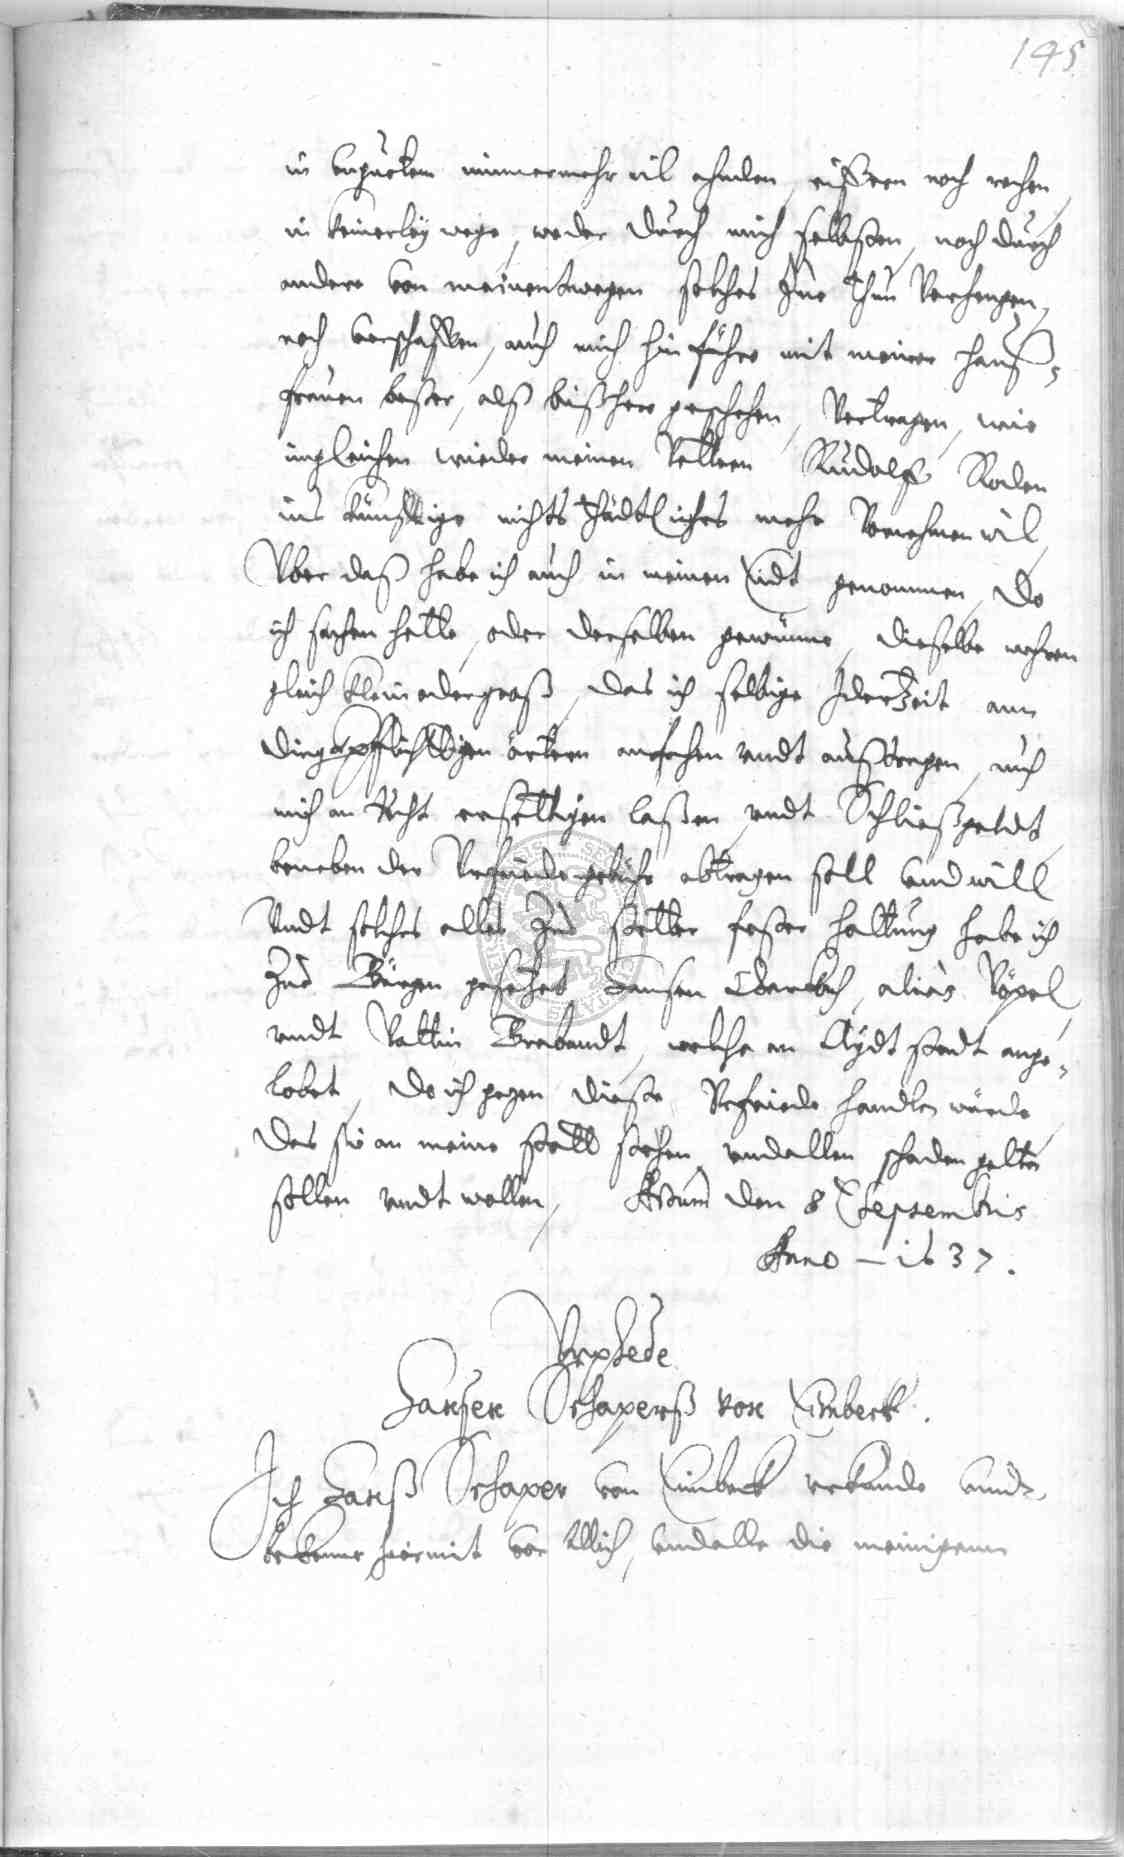 145
in ungutem nimmermehr wil ahnden, eiffern noch rechen,
in keinerley wege, weder durch mich selbsten, noch durch
andere von meinentwegen solches Zue thun Verhengen,
noch verschaffen, auch mich hinführo mit meiner Hauß-
frauen besser, alß bißhero geschehen, Vertragen, wie
imgleichen wieder meinen Vettern Rudolff Roden
ins künfftige nichts thädtliches mehr Vornehmen wil,
Vber daß habe ich auch in meinen Eidt genommen, Do
ich sachen hette, oder derselben gewünne, dieselbe wehren
gleich klein oder groß, das ich selbige Jderzeit ann
dingpflichtigen örtern ansehen vndt außtragen, auch
mich an Recht ersettigen laßen vndt Schließgeldt
beneben der Vrfriede gebühr abtragen soll vnd will
Vndt solches alles Zue stetter fester haltung habe ich
Zue Bürgen gesetzet Hansen, aliàs Röpel,
vndt Valtin Brabandt, welche an Aydt stadt ange-
lobet, Do ich gegen dieße Vrfriede handlen würde
Das sie an meine stadt stehen vnd allen schaden gelten
sollen vndt wollen, Actum den 8 Septembris
Anno – 1637.
Vrphede
Hansen Schaperß von Eimbeck.
Ich Hanß Schaper von Eimbeck vrkunde vndt
bekenne hiermit vor Mich, vnd alle die meinigenn